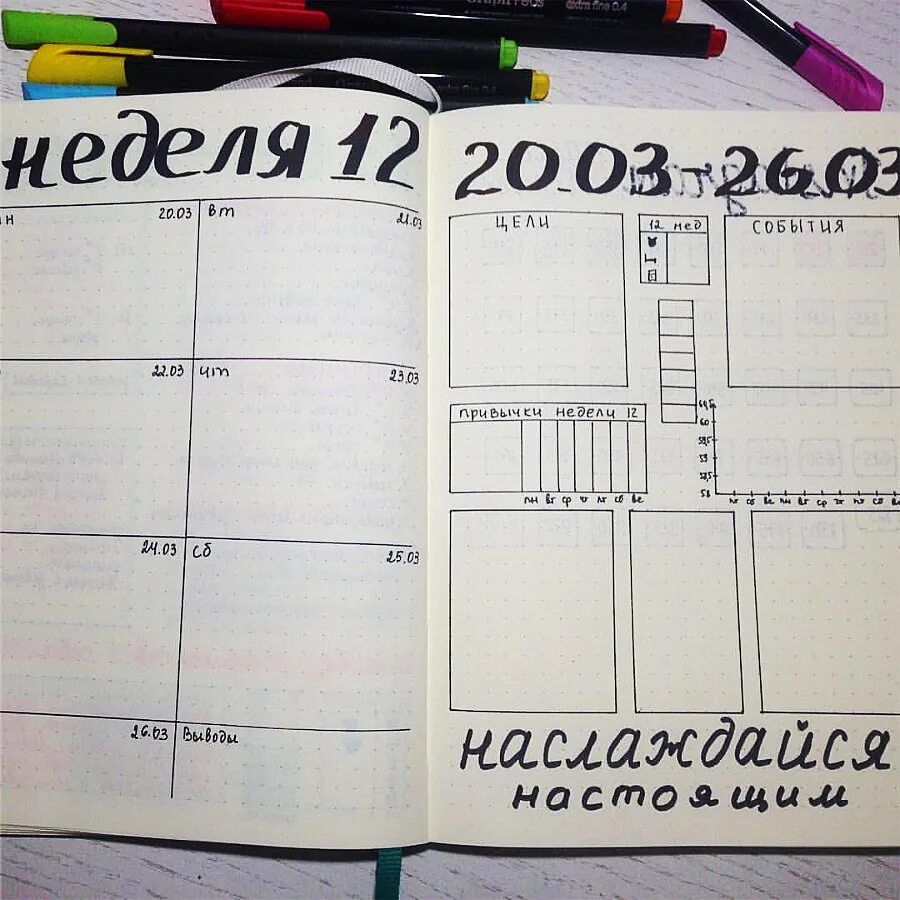 extra fine 0.4
неделя 12
20.03
Вт
21.03
22.03
чт
23.03
24.03
Сб
25.03
26.03
Выводы
20.03-26.03
ЦЕЛИ
12 нед
СОБЫТИЯ
привычки недели 12
пн вт ср чт пт сб вс
60,5
60
59,5
59
58,5
58
пт сб вс пн вт ср чт пт сб вс
наслаждайся
настоящим